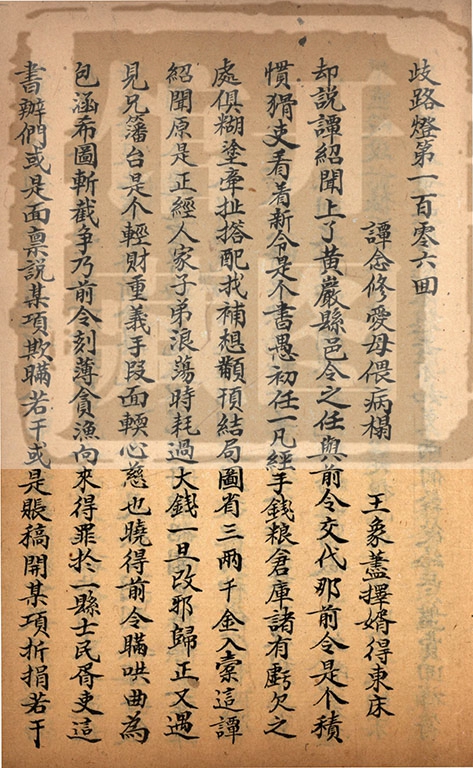 歧路燈第一百零六回
譚念修愛母偎病榻　王象藎擇婿得東床
却說譚紹聞上了黃巖縣邑令之任與前令交代那前令是个積
慣猾吏看着新令是个書愚初任一凡經手錢粮倉庫諸有虧欠之
處俱糊塗牽扯搭配找補想顢頇結局圖省三兩千金入槖這譚
紹聞原是正經人家子弟浪蕩時耗過大錢一旦改邪歸正又遇
見兄籓台是个輕財重義手段面輭心慈也曉得前令瞞哄曲為
包涵希圖斬截爭乃前令刻薄貪漁向來得罪扵一縣士民胥吏這
書辦們或是面禀說某項欺瞞若干或是賬稿開某項折捐若干